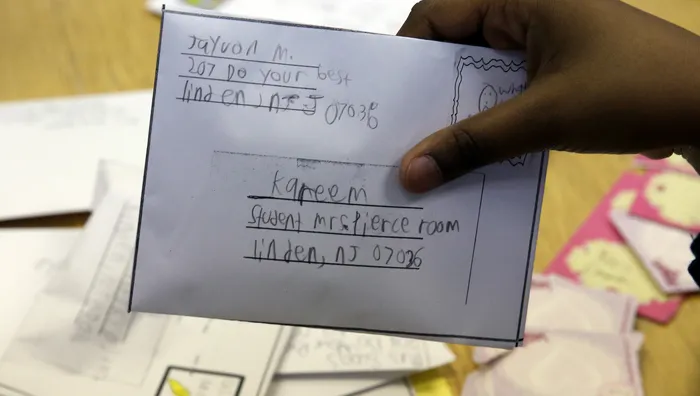 Jayvon M.
207 Do Your best
linden, NJ 07036
Kareem
Student mrs pierce room
linden, NJ 07036